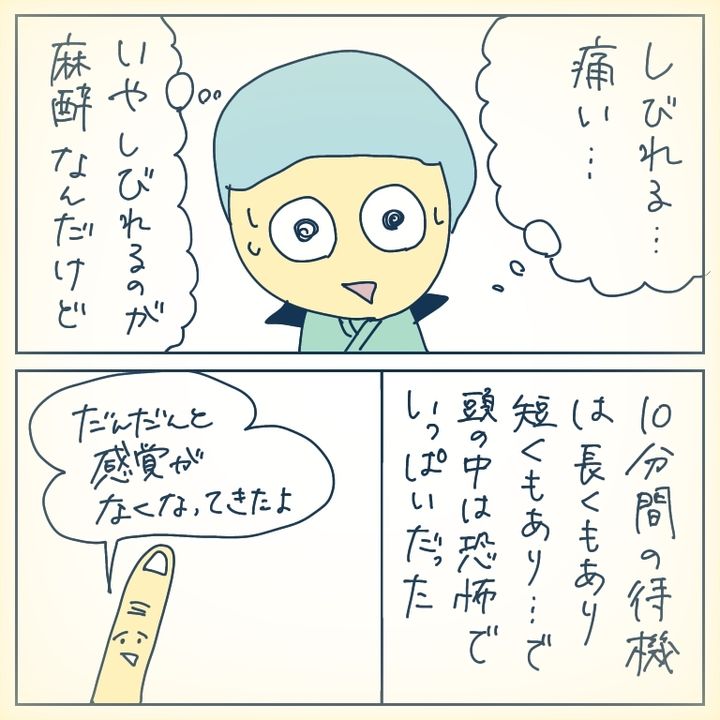 しびれる…
痛い…
いやしびれるのが
麻酔なんだけど
10分間の待機
は長くもあり
短くもあり…で
頭の中は恐怖で
いっぱいだった
だんだんと
感覚が
なくなってきたよ